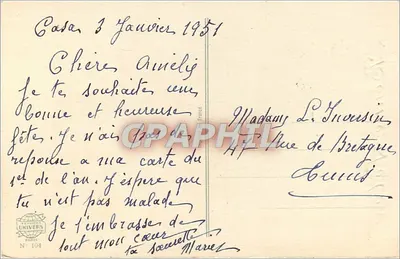 Casa 3 Janvier 1951
Chère Amélie
Je te souhaite une
bonne et heureuse
fêtes. Je n'ai pas de
reponse a ma carte du
1er de l'an. J'espere que
tu n'est pas malade
Je t'embrasse de
tout mon cœur
ta sœurette
Madame L.
47 Rue de Bretagne
Tunis
CPAPHIL
UNIVERS
N° 108